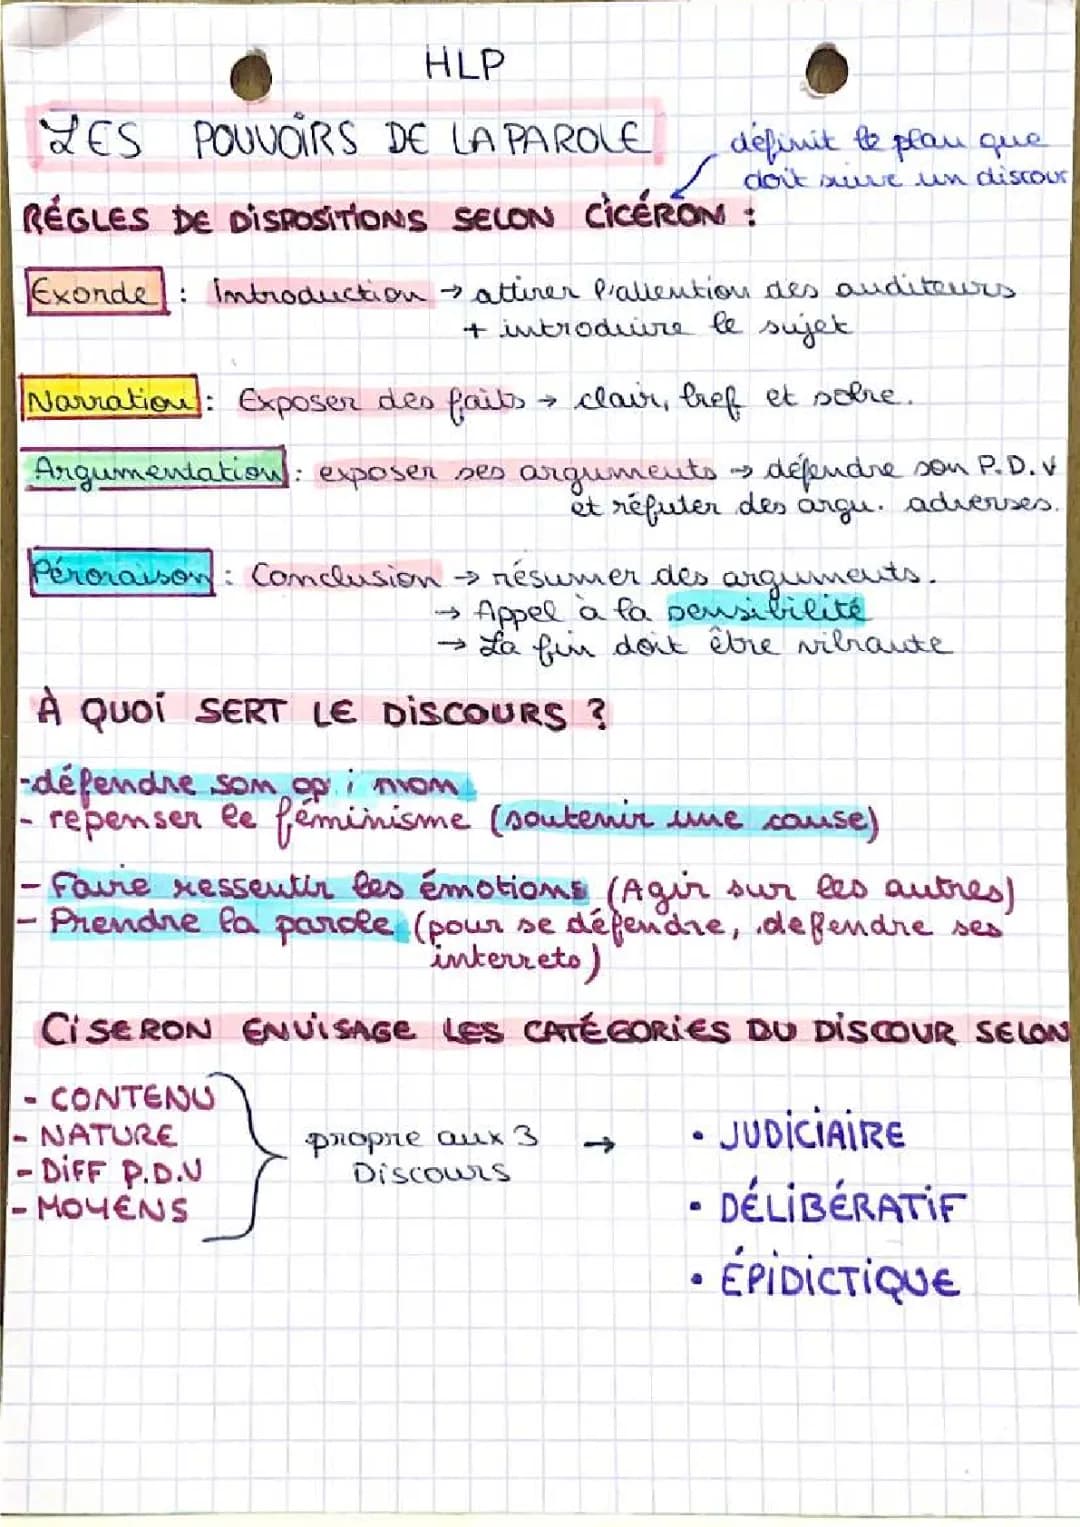 HLP
LES POUVOIRS DE LA PAROLE
définit le plan que
doit suivre un discour
RÉGLES DE DISPOSITIONS SELON CICÉRON :
Exorde : Introduction → attirer l'attention des auditeurs
+ introduire le sujet
Narration : Exposer des faits → clair, bref et sobre.
Argumentation : exposer ses arguments → défendre son P.D.V
et réfuter des argu. adverses.
Péroraison : Conclusion → résumer des arguments.
→ Appel à la sensibilité
→ La fin doit être vibrante
À QUOI SERT LE DISCOURS ?
- défendre son opinion
- repenser le féminisme (soutenir une cause)
- Faire ressentir les émotions (Agir sur les autres)
- Prendre la parole (pour se défendre, defendre ses
interrets)
CISERON ENVISAGE LES CATÉGORIES DU DISCOUR SELON
- CONTENU
- NATURE
- DIFF P.D.V
- MOYENS
propre aux 3 →
Discours
• JUDICIAIRE
• DÉLIBÉRATIF
• ÉPIDICTIQUE